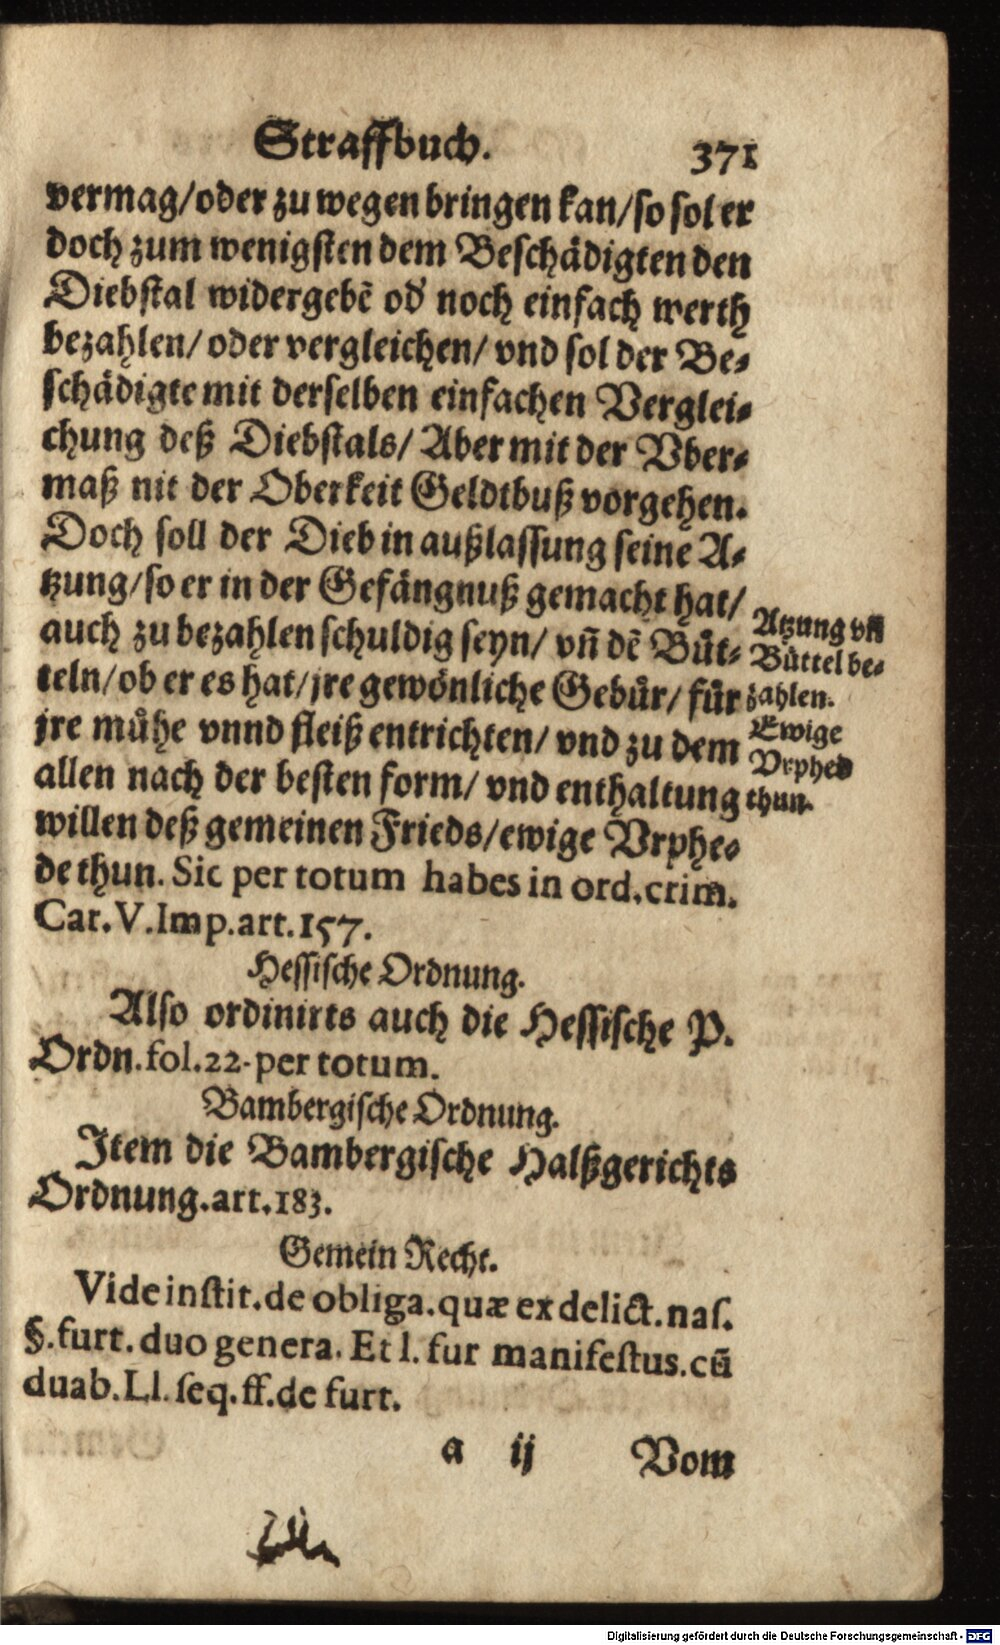 Straffbuch. 371
vermag/oder zu wegen bringen kan/so sol er
doch zum wenigsten dem Beschädigten den
Diebstal widergebẽ od' noch einfach werth
bezahlen/ oder vergleichen/ vnd sol der Be-
schädigte mit derselben einfachen Verglei-
chung deß Diebstals/ Aber mit der Vber-
maß nit der Oberkeit Geldtbuß vorgehen.
Doch soll der Dieb in außlassung seine A-
tzung/so er in der Gefängnuß gemacht hat/
auch zu bezahlen schuldig seyn/ vñ dẽ Büt-
teln/ob er es hat/jre gewönliche Gebür/ für
jre mühe vnnd fleiß entrichten/ vnd zu dem
allen nach der besten form/ vnd enthaltung
willen deß gemeinen Frieds/ewige Vrphe-
de thun. Sic per totum habes in ord.crim.
Car.V.Imp.art.157.
Atzung vñ
Büttel be-
zahlen.
Ewige
Vrphed
thun.
Hessische Ordnung.
Also ordinirts auch die Hessische P.
Ordn.fol.22.per totum.
Bambergische Ordnung.
Item die Bambergische Halßgerichts
Ordnung.art.183.
Gemein Recht.
Vide instit.de obliga.quæ ex delict.nas.
§.furt.duo genera. Et l. fur manifestus.cũ
duab.Ll.seq.ff.de furt.
a ij Vom
Digitalisierung gefördert durch die Deutsche Forschungsgemeinschaft - DFG